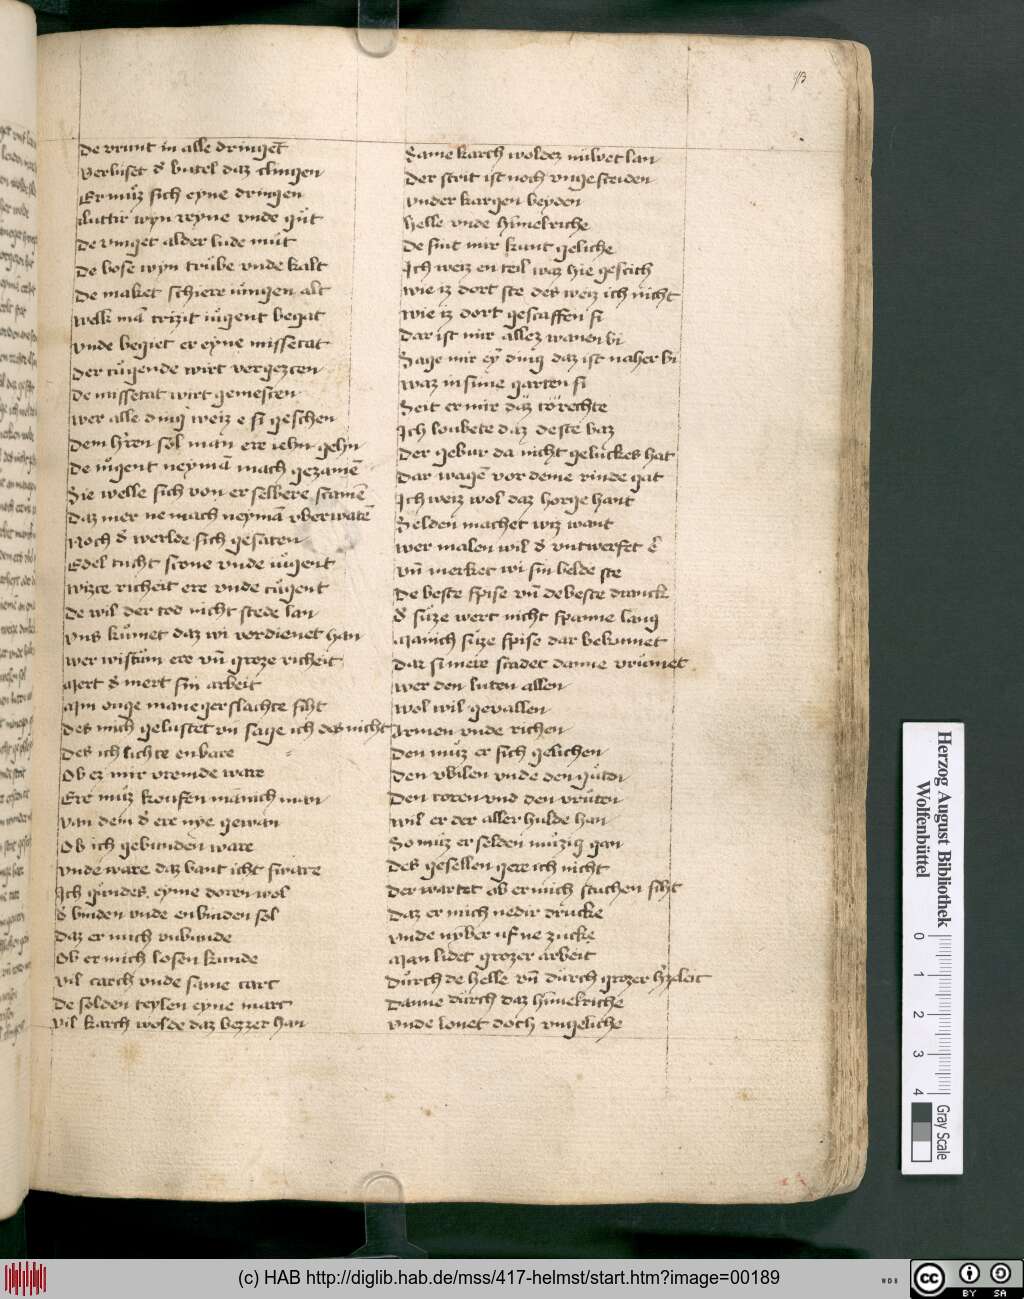 93
De vrunt in alle dringet
Verluset d' butel daz clingen
Er muͦz sich eyne dringen
Luttir wyn reyne vnde guͦt
De vinget alder lude muͦt
De bose wyn truͦbe vnde kalt
De maket schiere iungen alt
Welk mā trizit iuͦgent begat
Vnde begiet er eyne missetat
Der tuͦgende wirt vergezcen
De missetat wirt gemescen
Wer alle dinq weiz e si geschen
Dem h'ren sol man ere iehn
De iuͦgent neymā mach gezamē
Sie welle sich von er selbere scamē
Daz mer ne mach neymā vberwatē
Noch d' werlde sich gesaten
Edel tucht scone vnde iuͦgent
Wizce richeit ere vnde tuͦgent
De wil der tod nicht stede lan
Vns kuͦmet daz wi vordienet han
Wer wistūm ere vn̄ groze richeit
Mert d' mert sin arbeit
Min ouge maneger slachte siht
Des mich gelustet vn sage ich des nicht
Des ich lichte enbare
Ob ez mir vremde ware
Ere muͦz koufen manich man
Van dem d' ere nye gewan
Ob ich gebunden ware
Vnde ware daz bant icht sware
Ich guͦndes eyme doren wol
d' binden vnde enbinden sol
Daz er mich vnbunde
Ob er mich losen kunde
Vil carch vnde same cart
De solden teylen eyne marc
Vil karch wolde daz bezzer han
Same karch woldez nuͦwet lan
Der strit ist noch vngesceiden
Vnder kargen beyden
Helle vnde himelriche
De sint mir kunt geliche
Ich weiz en teil waz hie gescich
Wie iz dort ste des weiz ich nicht
Wie iz dort gescaffen si
Dar ist mir allez wanen bi
Sage mir eȳ ding daz ist naher bi
Waz in sime garten si
Seit er mir daz to rechte
Ich loubete daz deste baz
Der gebur da nicht geluckes hat
Dar wagē vor deme rinde gat
Ich weiz wol daz horge hant
Selden machet wiz want
Wer malen wil d' vntwerfet ē
Vn̄ merket wi sin belde ste
De beste spise vn̄ de beste dranck
d' suͦze wert nicht spanne lang
Manich suͦze spise dar bekumet
Daz si mere scadet danne vruͦmet
Wer den luten allen
Wol wil gevallen
Armen vnde richen
Den muͦz er sich gelichen
Den vbilen vnde den guͦten
Den toren vnd den vruͦten
Wil er der aller hulde han
So muͦz er selden muͦzig gan
Des gesellen gere ich nicht
Der wartet ob er mich struchen siht
Daz er mich nedir drucke
Vnde nyber uf ne zucke
Man lidet grozer arbeit
Duͦrch de helle vn̄ duͦrch grozer h'zleit
Danne duͦrch daz himelriche
Vnde lonet doch vngeliche
Herzog August Bibliothek
Wolfenbüttel
0 1 2 3 4
Gray Scale
(c) HAB http://diglib.hab.de/mss/417-helmst/start.htm?image=00189
WDB
cc BY SA